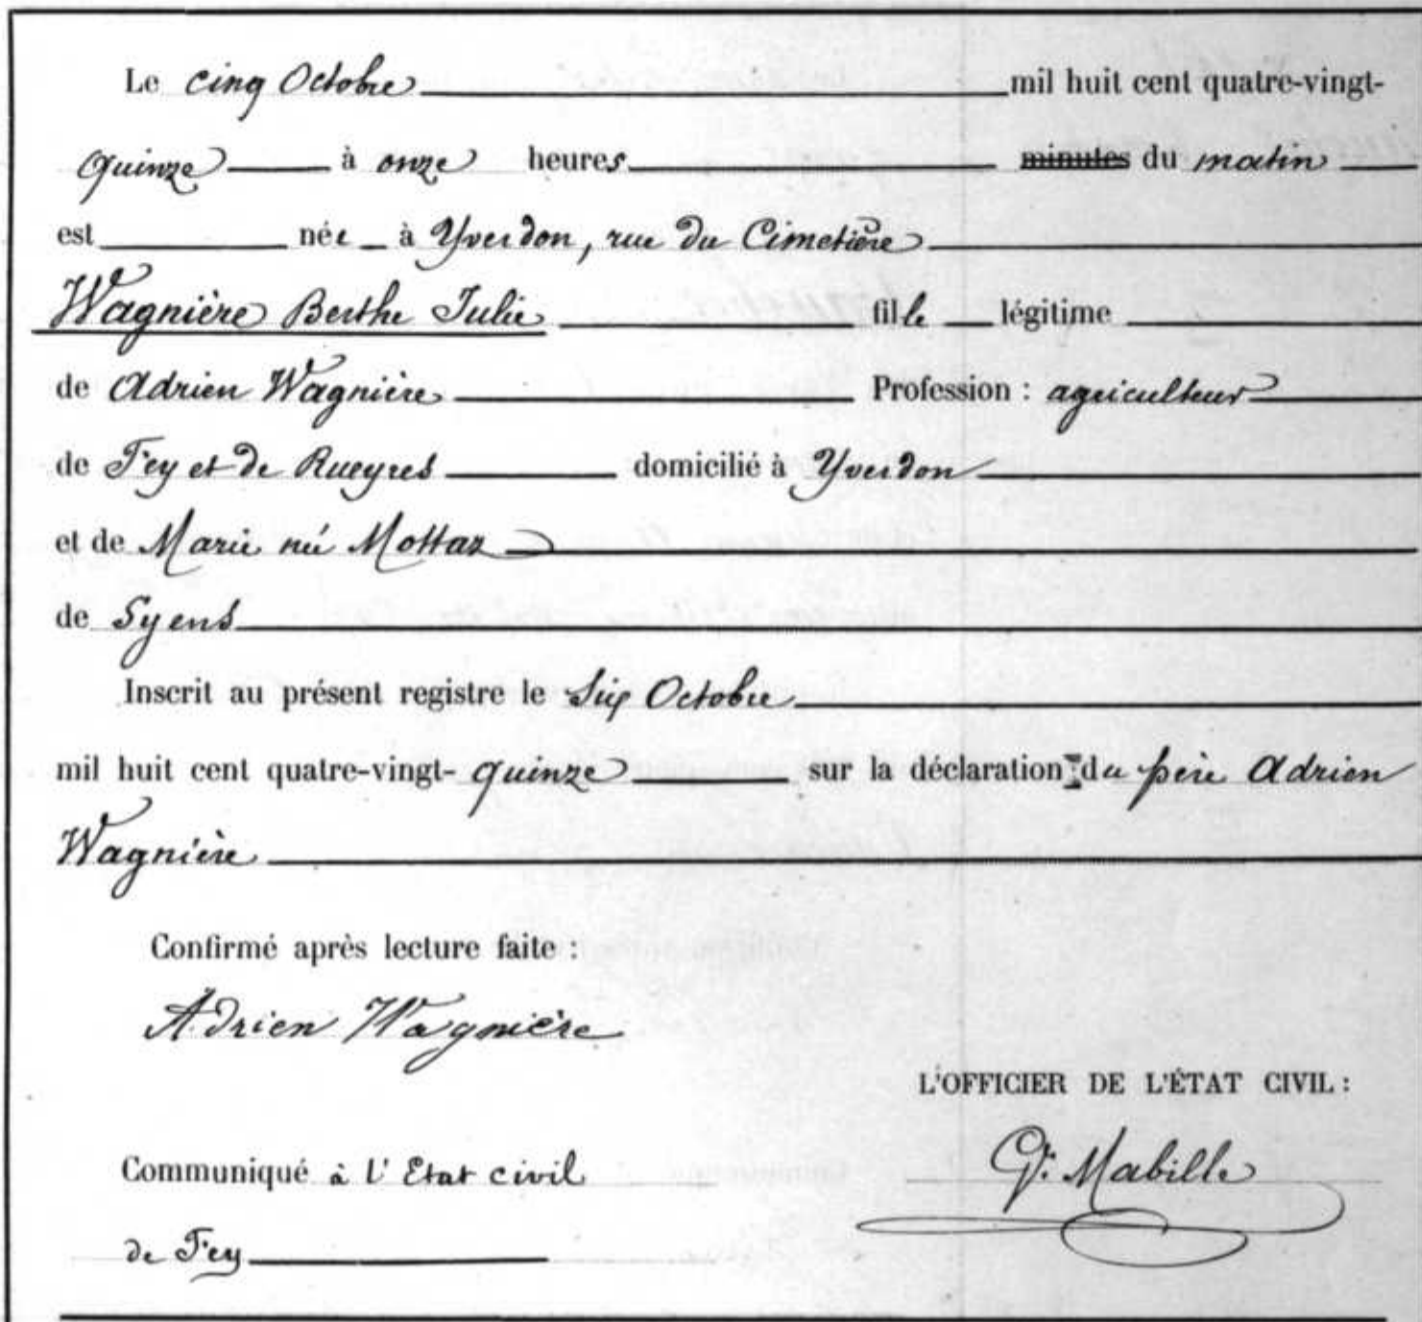 Le cinq Octobre mil huit cent quatre-vingt-
quinze à onze heures minutes du matin
est née à Yverdon, rue du Cimetière
Wagnière Berthe Julie fille légitime
de Adrien Wagnière Profession : agriculteur
de Fey et de Rueyres domicilié à Yverdon
et de Marie née Mottaz
de Syens
Inscrit au présent registre le six Octobre
mil huit cent quatre-vingt- quinze sur la déclaration du père Adrien
Wagnière
Confirmé après lecture faite :
Adrien Wagnière
L'OFFICIER DE L'ÉTAT CIVIL :
Communiqué à l'Etat civil
Mabille
de Fey